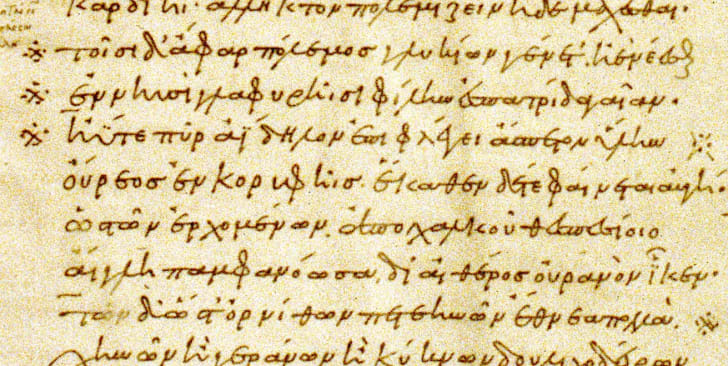 καρδίηι· ἄλληκτον πολεμίζειν ἠδὲ μάχεσθαι·
τοῖσι δ' ἄφαρ πόλεμος γλυκίων γένετ'· ἠὲ νέεσθαι
ἐν νηυσὶ γλαφυρῆισι φίλην ἐς πατρίδα γαῖαν·
ἠΰτε πῦρ ἀΐδηλον ἐπιφλέγει ἄσπετον ὕλην
οὔρεος ἐν κορυφῆις· ἕκαθεν δέ τε φαίνεται αὐγή
ὣς τῶν ἐρχομένων, ἀπὸ χαλκοῦ θεσπεσίοιο
αἴγλη παμφανόωσα, δι' αἰθέρος οὐρανὸν ἷκεν·
τῶν δ' ὥς τ' ὀρνίθων πετεηνῶν ἔθνεα πολλὰ,
χηνῶν ἢ γεράνων ἢ κύκνων δουλιχοδείρων